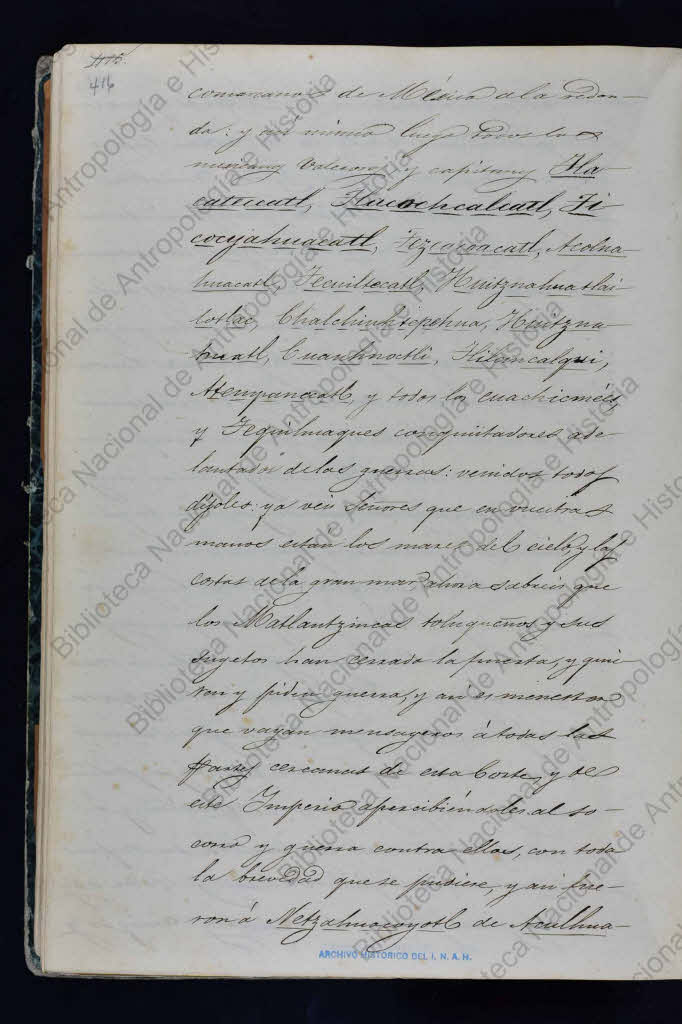 415.
416
comarcanos de México á la redon-
da: y así mismo luego todos los
mexicanos valerosos y capitanes Tla
cateecatl, Tlacochcalcatl, Ti
cocyahuacatl, Tezcacoacatl, Acolna
huacatl, Tecuiltecatl, Huitznahuatlai-
lotlac, Chalchiuhtepehua, Huitzna-
huatl, Cuauhnoctli, Tlilancalqui,
Atempanecatl, y todos los cuachicmées,
y Tequihuaques conquistadores ade-
lantados de las guerras: venidos todos
díjoles: ya veis Señores que en vuestras
manos están los mares del cielo, y las
costas de la gran mar, ahora sabreis que
los Matlantzincas toluqueños, y sus
sugetos han cerrado la puerta, y quie
ren y piden guerra, y así es menester
que vayan mensageros á todas las
partes cercanas de esta Corte, y de
este Imperio apercibiéndoles al so-
corro y guerra contra ellos, con toda
la brevedad que se pudiere, y así fue-
ron á Netzahualcoyotl de Aculhua-
ARCHIVO HISTORICO DEL I. N. A. H.
Biblioteca Nacional de Antropología e Historia